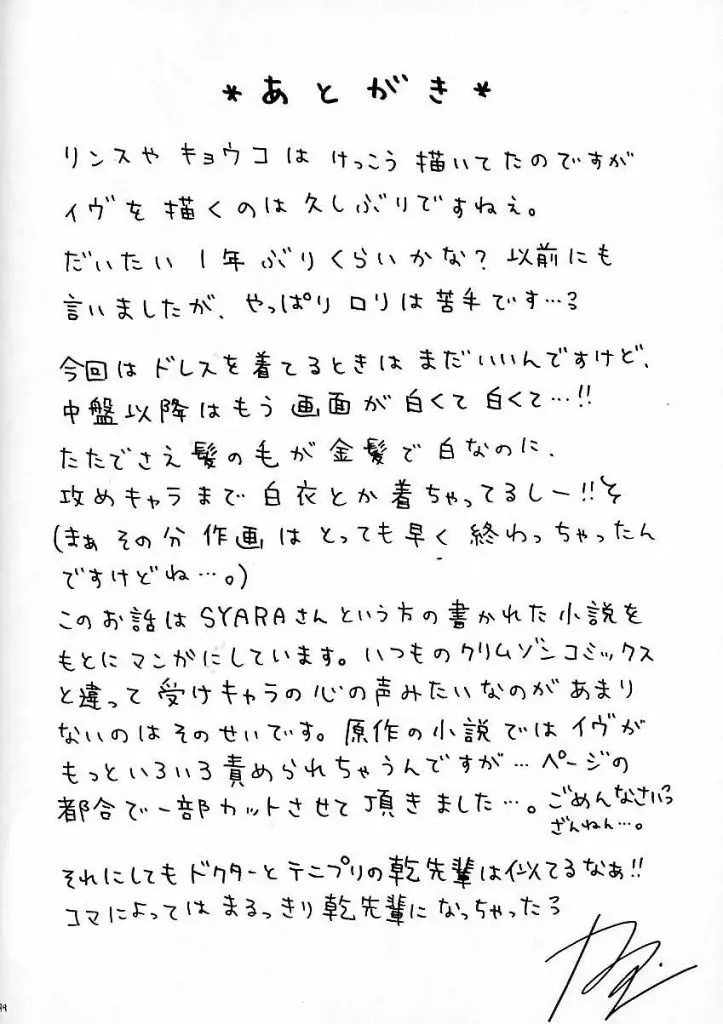 *あとがき*
リンスや キョウコは けっこう 描いてたのですが
イヴを 描くのは 久しぶりですねぇ。
だいたい 1年ぶりくらいかな? 以前にも
言いましたが、やっぱり ロリは苦手です…う
今回は ドレスを着てるときは まだいいんですけど、
中盤以降はもう 画面が白くて白くて…!!
たたでさえ髪の毛が 金髪で白なのに、
攻めキャラまで 白衣とか着ちゃってるしー!!
(まぁ その分 作画は とっても早く 終わっちゃったん
ですけどね…。)
このお話はSYARAさんという方の書かれた小説を
もとにマンガにしています。いつものクリムゾンコミックス
と違って 受けキャラの心の声みたいなのがあまり
ないのはそのせいです。原作の小説ではイヴが
もっといろいろ責められちゃうんですが…ページの
都合で一部カットさせて頂きました…。ごめんなさいっ
ざんねん…。
それにしてもドクターとテニプリの乾先輩は似てるなぁ!!
コマによってはまるっきり乾先輩になっちゃったう